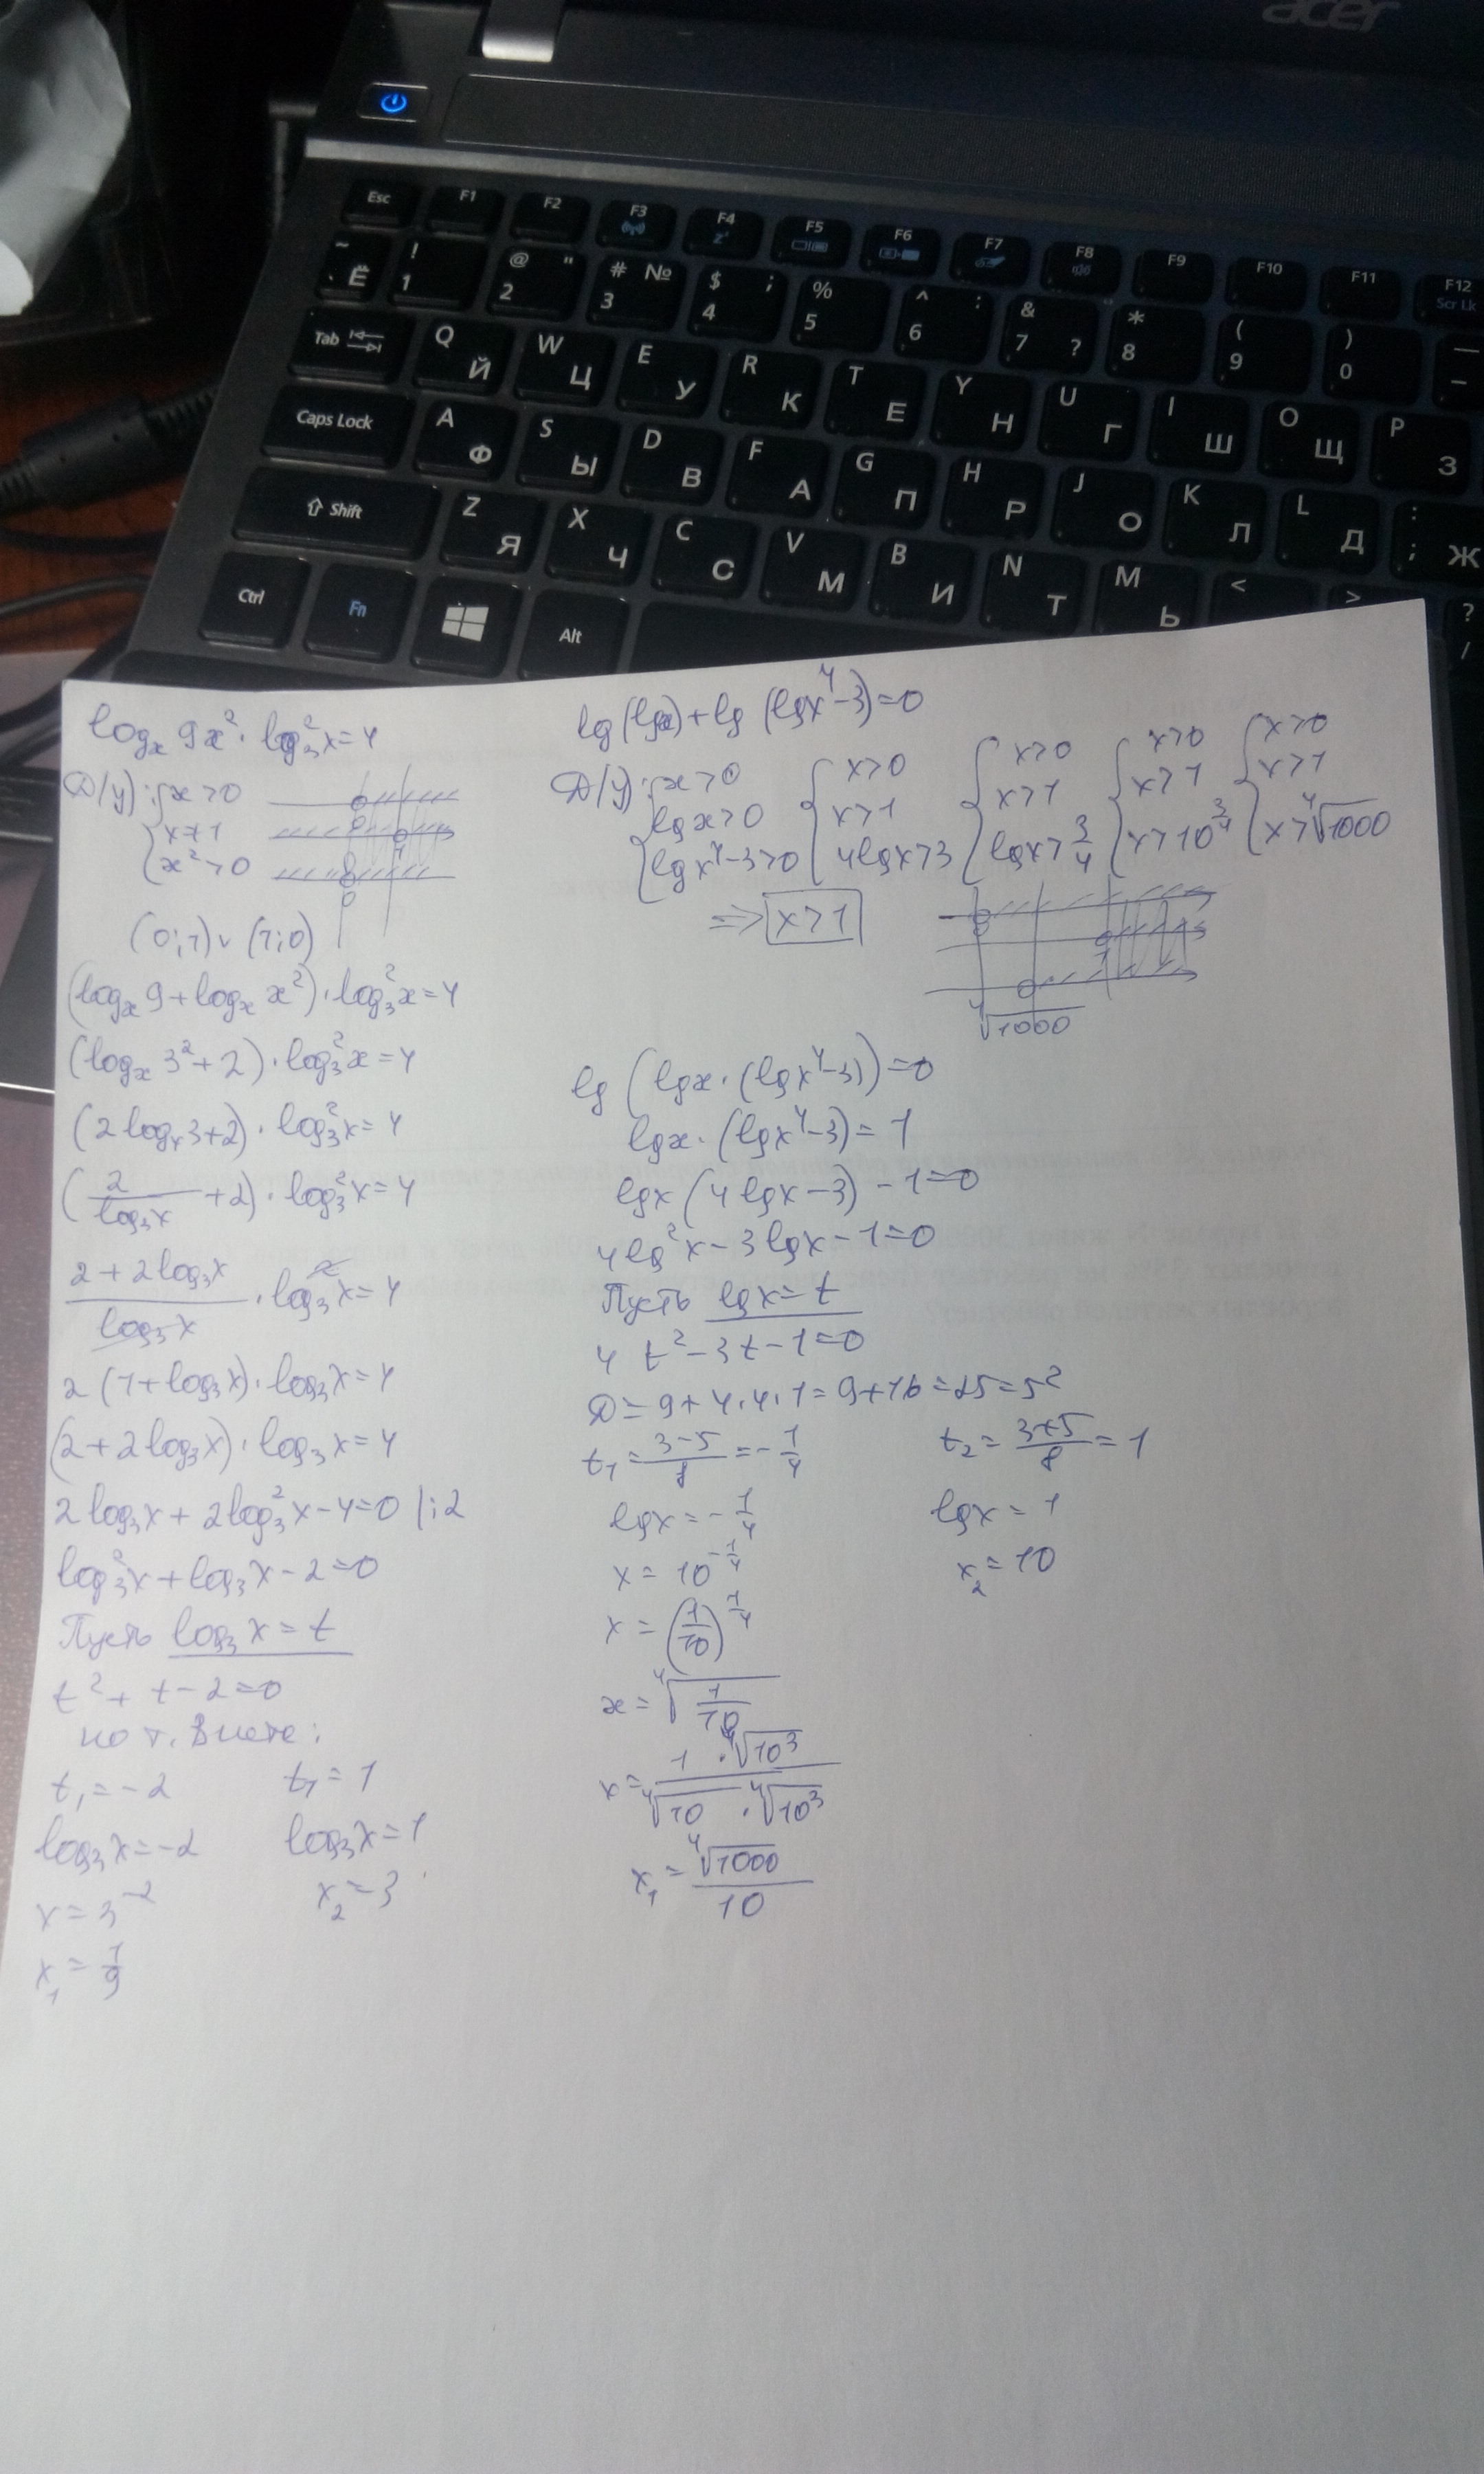 acer
Esc F1 F2 F3 F4 F5 F6 F7 F8 F9 F10 F11 F12
Scr Lk
~ Ё ! 1 @ " 2 # № 3 $ ; 4 % 5 ^ : 6 & 7 ? * 8 ( 9 ) 0 — –
Tab Q Й W Ц E У R К T Е Y Н U Г I Ш O Щ P З
Caps Lock A Ф S Ы D В F А G П H Р J О K Л L Д : ; Ж
Shift Z Я X Ч C С V М B И N Т M Ь < > ? /
Ctrl Fn Alt
logₓ 9x² · log₃²x = 4
D(y): { x > 0
x ≠ 1
x² > 0
0
0
1
0
(0;1) ∪ (1;0)
(logₓ 9 + logₓ x²) · log₃²x = 4
(logₓ 3² + 2) · log₃²x = 4
(2logₓ3 + 2) · log₃²x = 4
(2/log₃x + 2) · log₃²x = 4
(2 + 2log₃x)/log₃x · log₃²x = 4
2(1 + log₃x) · log₃x = 4
(2 + 2log₃x) · log₃x = 4
2log₃x + 2log₃²x − 4 = 0 |:2
log₃²x + log₃x − 2 = 0
Пусть log₃x = t
t² + t − 2 = 0
по т. Виета:
t₁ = −2 t₁ = 1
log₃x = −2 log₃x = 1
x = 3⁻² x₂ = 3
x₁ = 1/9
lg(lgx) + lg(lgx⁴ − 3) = 0
D(y): { x > 0 { x > 0 { x > 0 { x > 0 { x > 0
lgx > 0 x > 1 x > 1 x > 1 x > 1
lgx⁴ − 3 > 0 4lgx > 3 lgx > 3/4 x > 10^(3/4) x > ⁴√1000
⇒ x > 1
0
1
⁴√1000
lg(lgx · (lgx⁴ − 3)) = 0
lgx · (lgx⁴ − 3) = 1
lgx(4lgx − 3) − 1 = 0
4lg²x − 3lgx − 1 = 0
Пусть lgx = t
4t² − 3t − 1 = 0
D = 9 + 4·4·1 = 9 + 16 = 25 = 5²
t₁ = (3−5)/8 = −1/4 t₂ = (3+5)/8 = 1
lgx = −1/4 lgx = 1
x = 10^(−1/4) x₂ = 10
x = (1/10)^(1/4)
x = ⁴√(1/10)
x = (1 · ⁴√10³)/(⁴√10 · ⁴√10³)
x₁ = ⁴√1000/10